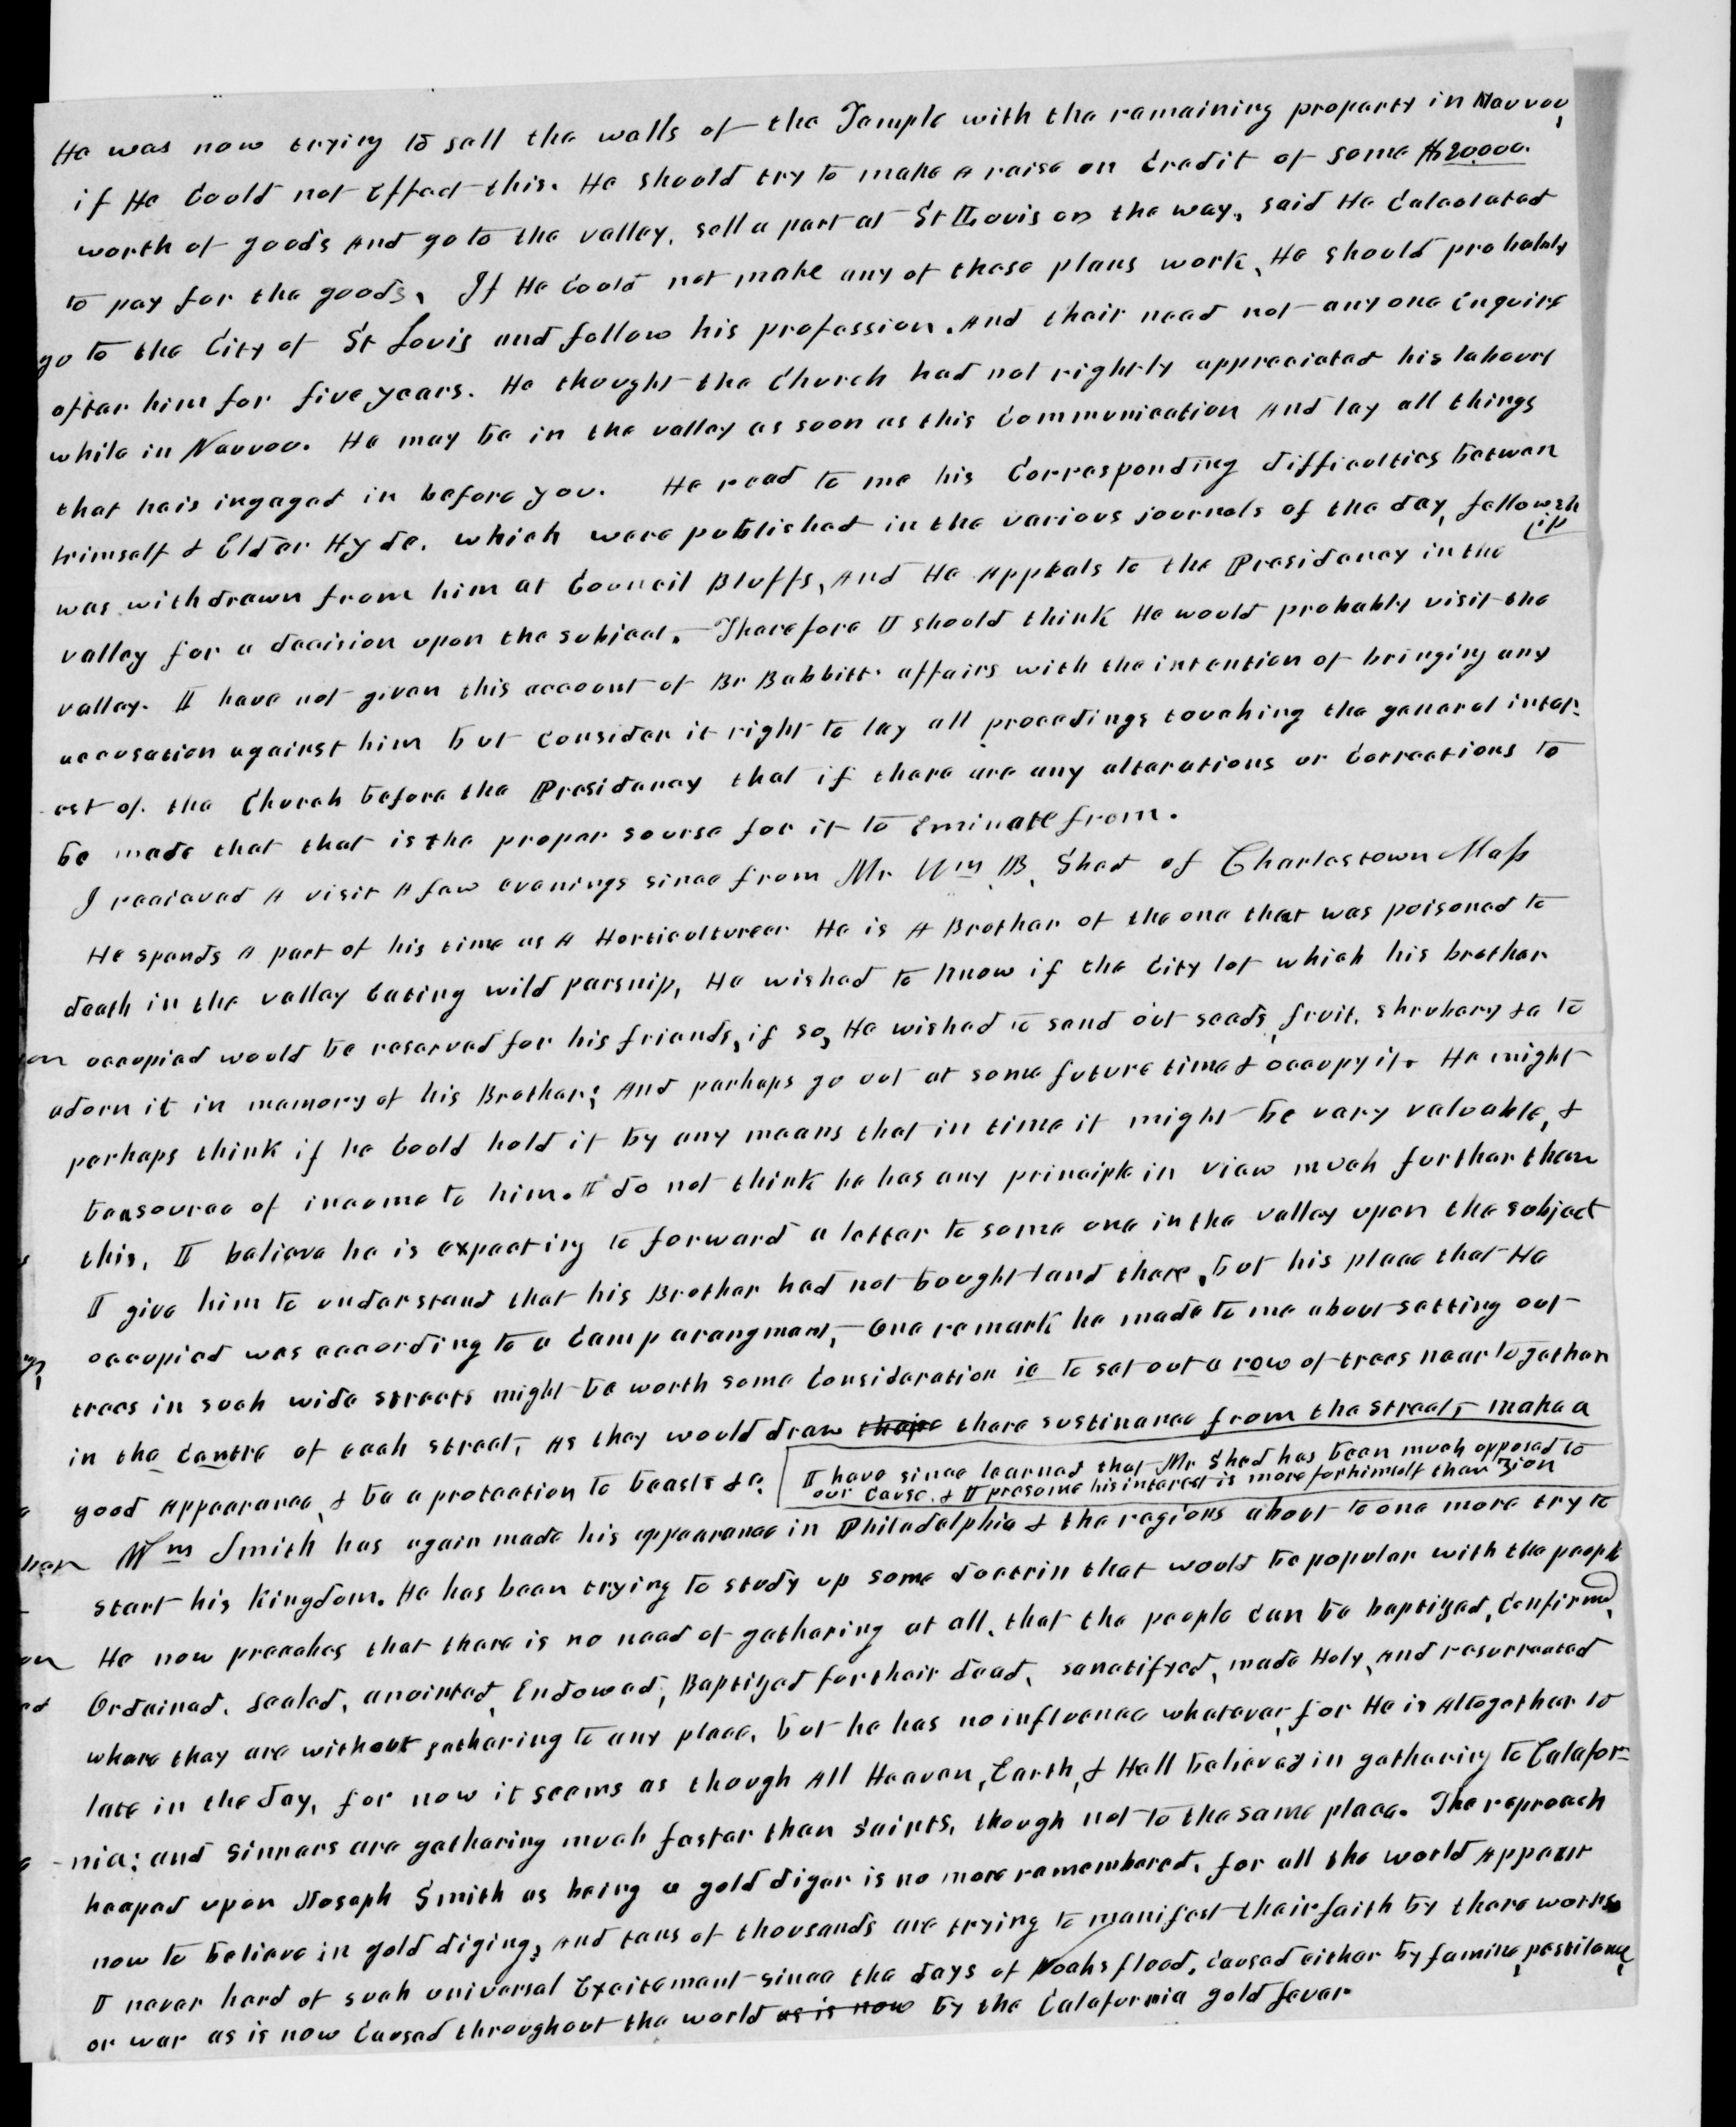 He was now trying to sell the walls of the Temple with the remaining property in Nauvoo,
if He Could not Effect this. He should try to make A raise on Credit of some $20.000.
worth of goods And go to the valley, sell a part at St Louis on the way, said He Calculated
to pay for the goods, If He Could not make any of these plans work, He should probably
go to the City of St Louis and follow his profession. And their need not any one Enquire
after him for five years. He thought the Church had not rightly appreciated his labours
while in Nauvoo. He may be in the valley as soon as this Communication And lay all things
that he is ingaged in before you. He read to me his Corresponding difficulties betwen
himself & Elder Hyde. which were published in the various journals of the day, fellowsh
ip
was withdrawn from him at Council Bluffs, And He Appeals to the Presidency in the
valley for a decision upon the subject. Therefore I should think He would probably visit the
valley. I have not given this account of Br Babbitt. affairs with the intention of bringing any
accusation against him but Consider it right to lay all procedings touching the general inter-
-est of. the Church before the Presidency that if there are any alterations or Corrections to
be made that that is the proper sourse for it to Eminate from.
I recieved A visit A few evenings since from Mr Wm B, Shed of Charlestown Mass
He spends A part of his time as A Horticultureer He is A Brother of the one that was poisoned to
death in the valley Eating wild parsnip, He wished to know if the City lot which his brother
on occupied would be reserved for his friends, if so, He wished to send out seeds, fruit, shrubery &c to
adorn it in memory of his Brother; And perhaps go out at some future time & occupy it. He might
perhaps think if he Could hold it by any means that in time it might be very valuable, &
be a source of income to him. I do not think he has any principle in view much further than
this, I believe he is expecting to forward a letter to some one in the valley upon the subject
I give him to understand that his Brother had not bought land there, but his place that He
occupied was according to a Camp arangment, One remark he made to me about setting out
trees in such wide streets might be worth some Consideration ie to set out a row of trees near together
in the Centre of each street, As they would draw their there sustinance from the street, make a
good Appearance, & be a protection to beasts &c. I have since learned that Mr Shed has been much opposed to
our Cause. & I presume his interest is more for himself than Zion
Wm Smith has again made his appearance in Philadelphia & the regions about to one more try to
start his Kingdom. He has been trying to study up some doctrin that would be popular with the people
He now preaches that there is no need of gathering at all, that the people Can be baptized, Confirmed,
Ordained, Sealed, anointed, Endowed, Baptized for their dead, sanctifyed, made Holy, And resurrected
where they are without gathering to any place, but he has no influence whatever, for He is Altogether to
late in the day, for now it seems as though All Heaven, Earth, & Hell believed in gathering to Calafor-
-nia; and Sinners are gathering much faster than Saints, though not to the same place. The reproach
heaped upon Joseph Smith as being a gold diger is no more remembered, for all the world Appear
now to believe in gold diging, And tens of thousands are trying to manifest their faith by there works.
I never hard of such universal Excitement since the days of Noahs flood, Caused either by famine, pestilence,
or war as is now Caused throughout the world as is now by the Calafornia gold fever